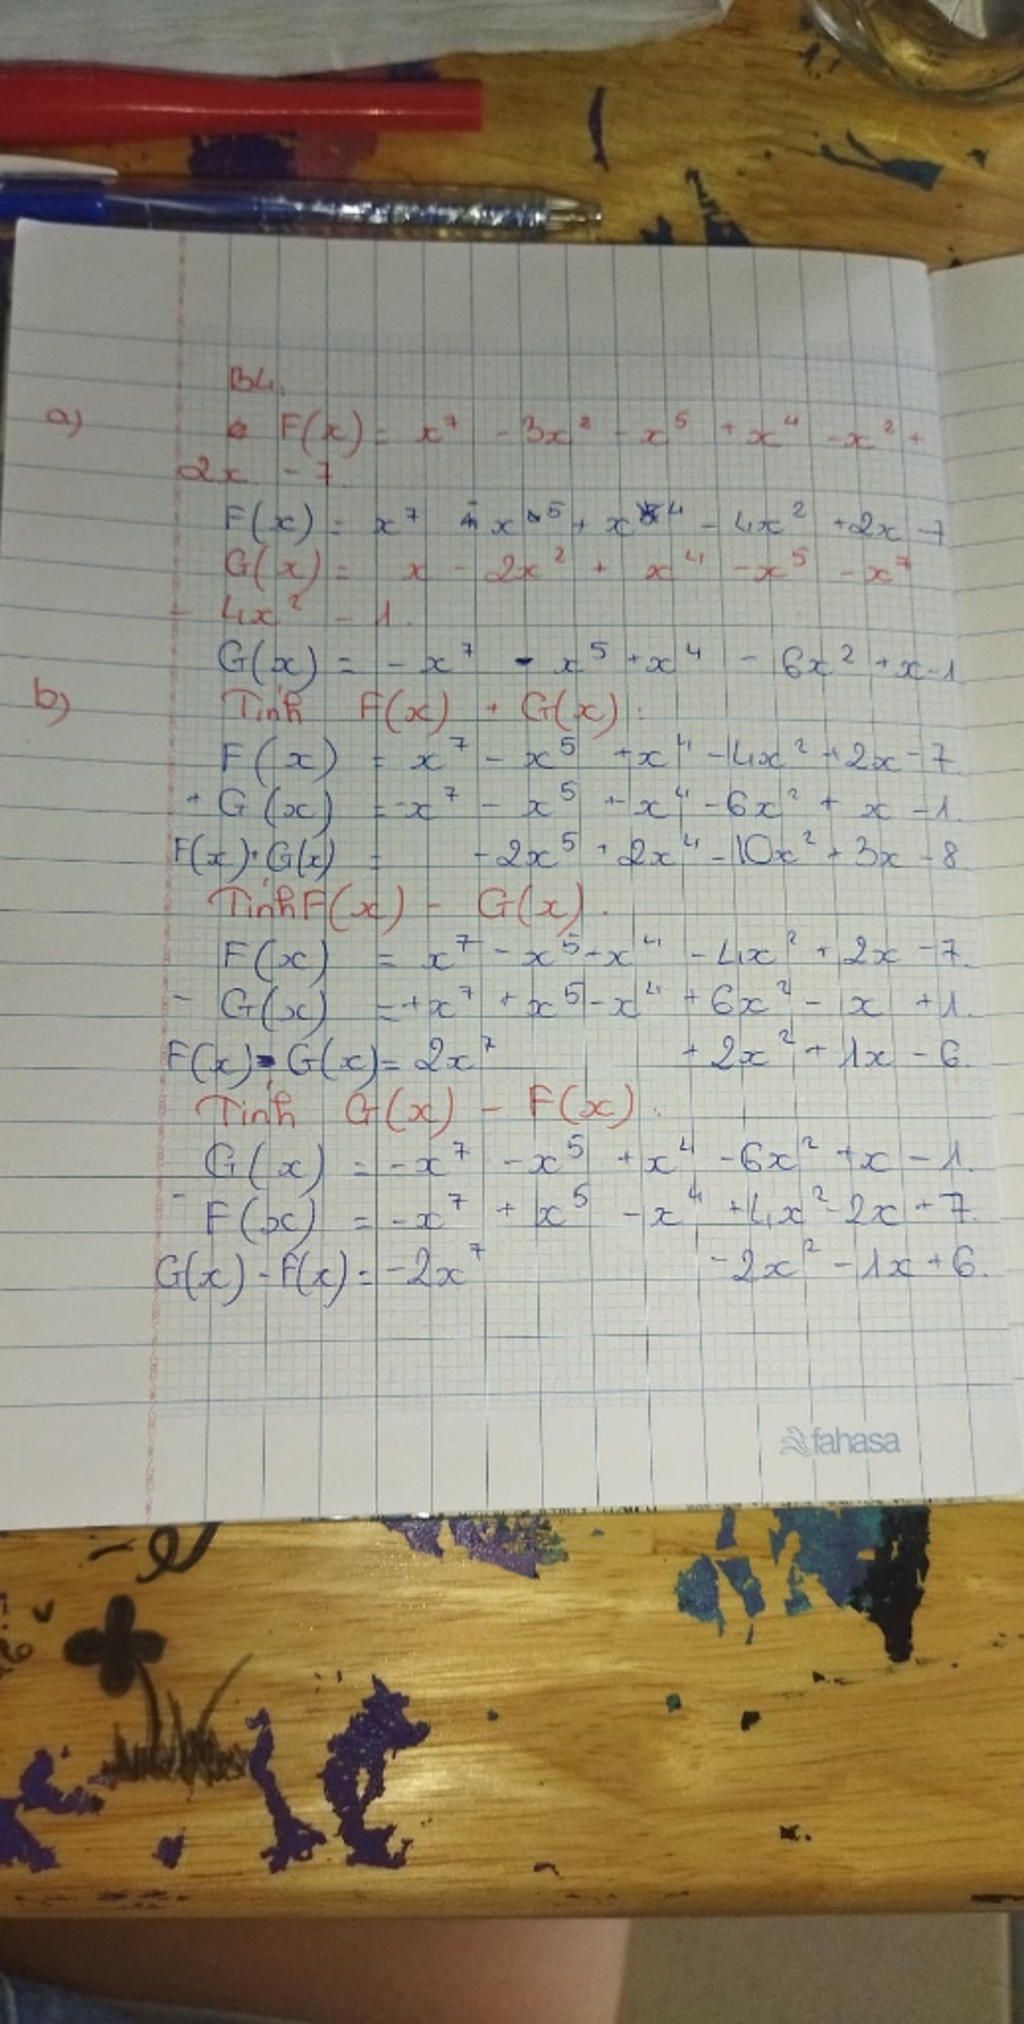 B4.
a) F(x) = x⁷ - 3x² - x⁵ + x⁴ - x² +
2x - 7.
F(x) = x⁷ - x⁵ + x⁴ - 4x² + 2x - 7
G(x) = x - 2x² + x⁴ - x⁵ - x⁷
- 4x² - 1.
G(x) = - x⁷ - x⁵ + x⁴ - 6x² + x - 1
b) Tính F(x) + G(x):
F(x) = x⁷ - x⁵ + x⁴ - 4x² + 2x - 7
+ G(x) = -x⁷ - x⁵ + x⁴ - 6x² + x - 1.
F(x) + G(x) = - 2x⁵ + 2x⁴ - 10x² + 3x - 8
Tính F(x) - G(x).
F(x) = x⁷ - x⁵ + x⁴ - 4x² + 2x - 7.
- G(x) = + x⁷ + x⁵ - x⁴ + 6x² - x + 1.
F(x) - G(x) = 2x⁷ + 2x² + 1x - 6.
Tính G(x) - F(x).
G(x) = - x⁷ - x⁵ + x⁴ - 6x² + x - 1
- F(x) = - x⁷ + x⁵ - x⁴ + 4x² - 2x + 7.
G(x) - F(x) = - 2x⁷ - 2x² - 1x + 6.
fahasa